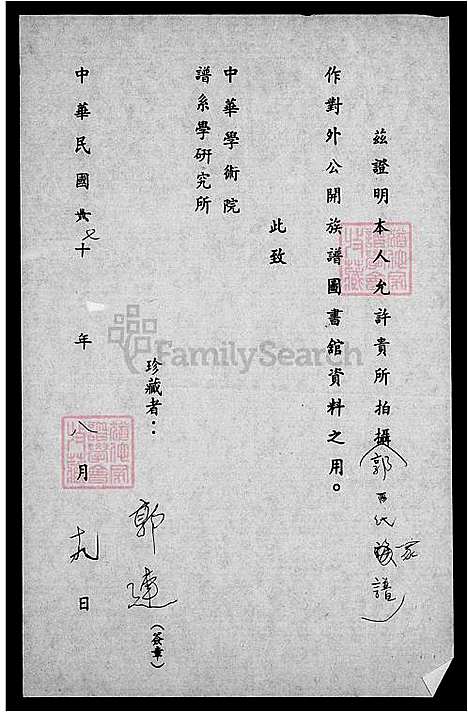 茲證明本人允許貴所拍攝(郭百代家族譜)
作對外公開族譜圖書館資料之用。
此致
中華學術院
譜系學研究所
珍藏者：郭達(簽章)
中華民國七十年八月九日
FamilySearch